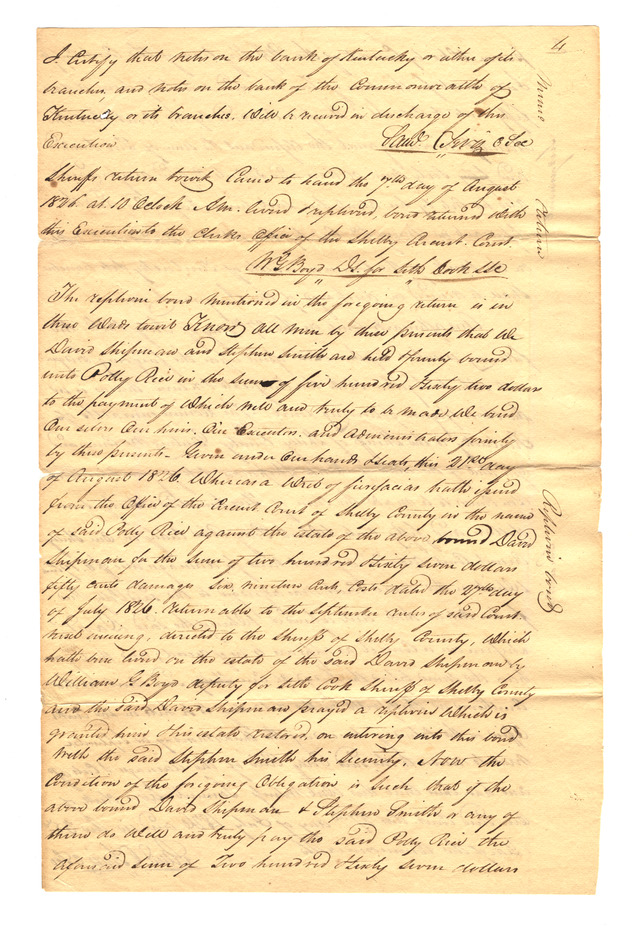 4
I Certify that notes on the bank of Kentucky or either of its
branches and notes on the bank of the Commonwealth of
Kentucky or its branches. Will be received in discharge of this
Execution
Sheriffs return towit Came to hand the 7th day of August
1826 at 10 Oclock AM. and replevied, bond returned with
this Execution to the Clerks Office of the Shelby Circuit Court.
Wm G Boyd DS. for Seth Cook SSC
The replevin bond mentioned in the foregoing return is in
these Words towit Know All men by these presents that We
David Shipman and Stephen Smith are held & firmly bound
unto Polly Rice in the sum of five hundred & sixty two dollars
to the payment of Which well and truly to be made We bind
Our selves Our heirs. Our Executors. and Administrators firmly
by these presents - Given under Our hands & seals, this 21st day
of August 1826. Whereas a Writ of firefacias hath issued
from the Office of the Circuit Court of Shelby County in the name
of said Polly Rice against the estate of the above bound David
Shipman for the sum of two hundred & sixty seven dollars
fifty cents damages six. nineteen Costs dated the 27th day
of July 1826. returnable to the September rules of said Court
next ensuing, directed to the Sheriff of Shelby County, Which
hath been levied on the estate of the said David Shipman by
William G Boyd deputy for Seth Cook Sheriff of Shelby County
and the said David Shipman prayed a replevin Which is
granted him & his estate restored, on entering into this bond
With the said Stephen Smith his Security. Now the
Condition of the foregoing Obligation is Such that if the
above bound David Shipman & Stephen Smith or any of
them do Well and truly pay the said Polly Rice the
aforesaid sum of Two hundred & sixty seven dollars
return
Replevin bond